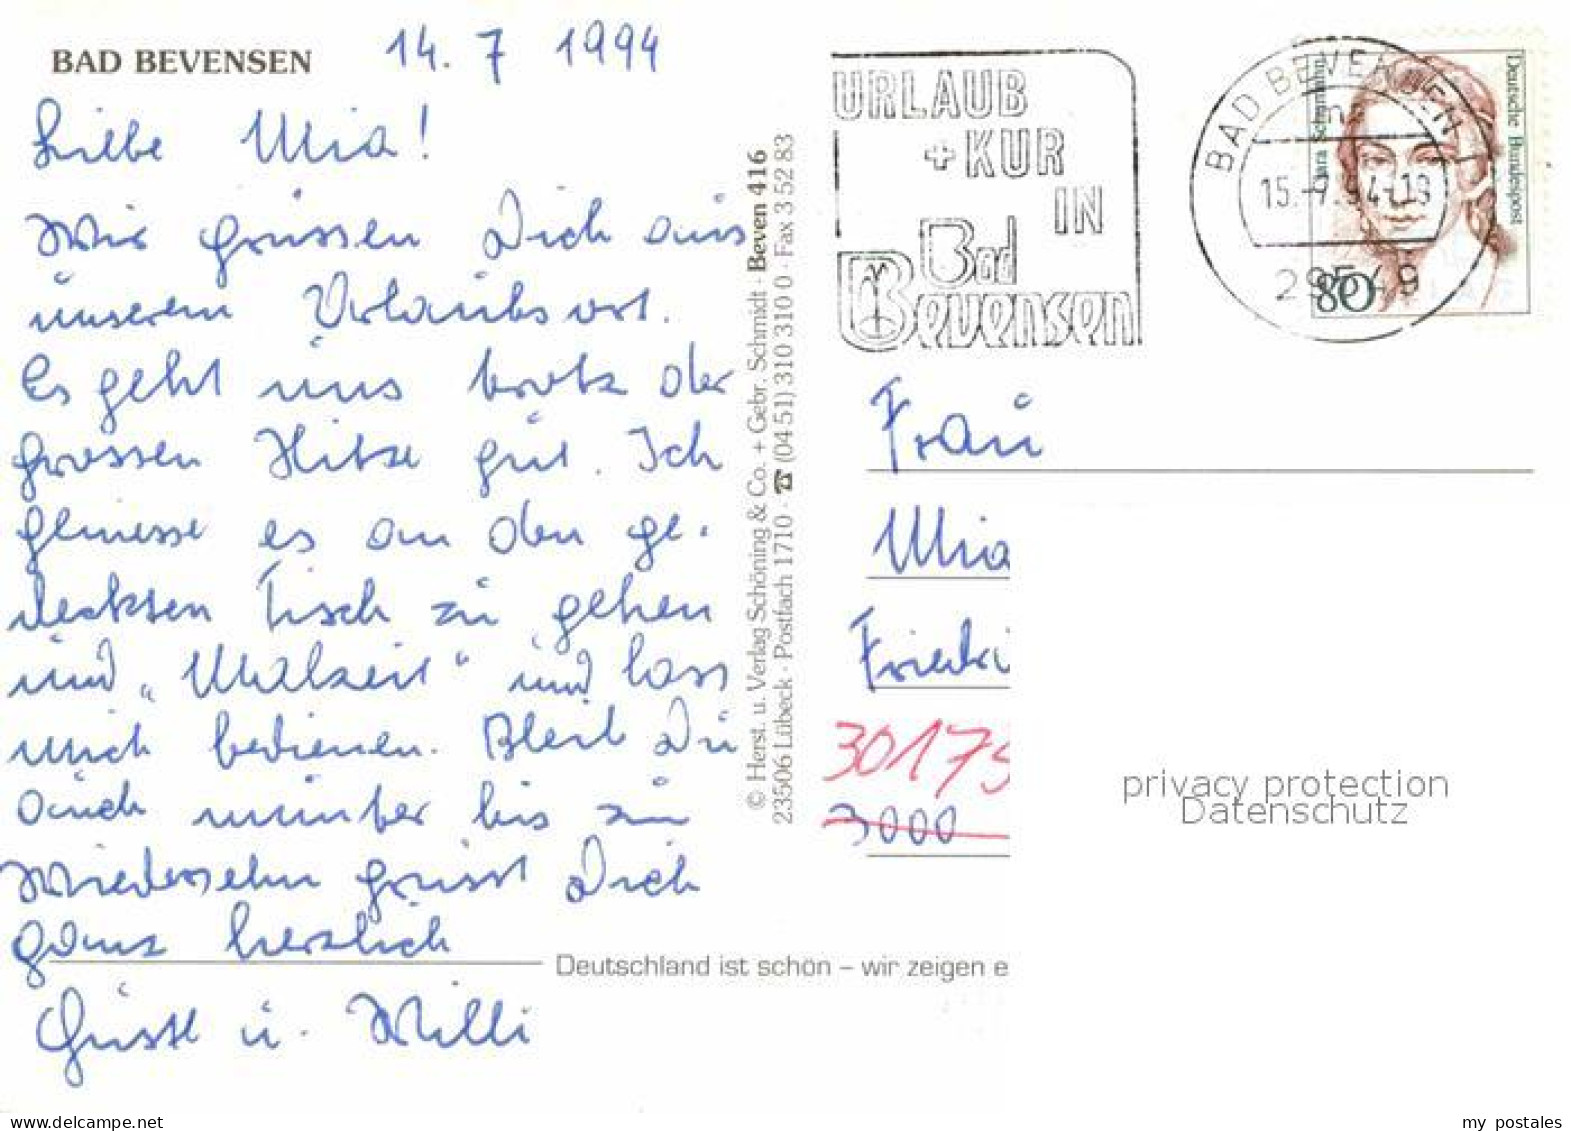 BAD BEVENSEN
14. 7 1994
Liebe Mia!
Wir grüssen Dich aus
unserem Urlaubsort.
Es geht uns trotz der
grossen Hitze gut. Ich
geniesse es an den ge-
deckten Tisch zu gehen
und „Mahlzeit“ und lass
mich bedienen. Bleib Du
auch munter bis zum
Wiedersehn grüsst Dich
ganz herzlich
Gustl u. Willi
Deutschland ist schön – wir zeigen e
© Herst. u. Verlag Schöning & Co. + Gebr. Schmidt · Beven 416
23506 Lübeck · Postfach 1710 · ☎ (04 51) 310 310 0 · Fax 3 52 83
URLAUB
+ KUR
IN
Bad
Bevensen
BAD BEVENSEN 1
15.-7.94-19
29549
Deutsche Bundespost
Clara Schumann
80
Frau
Mia
Friedri
30175
3000
privacy protection
Datenschutz
my postales